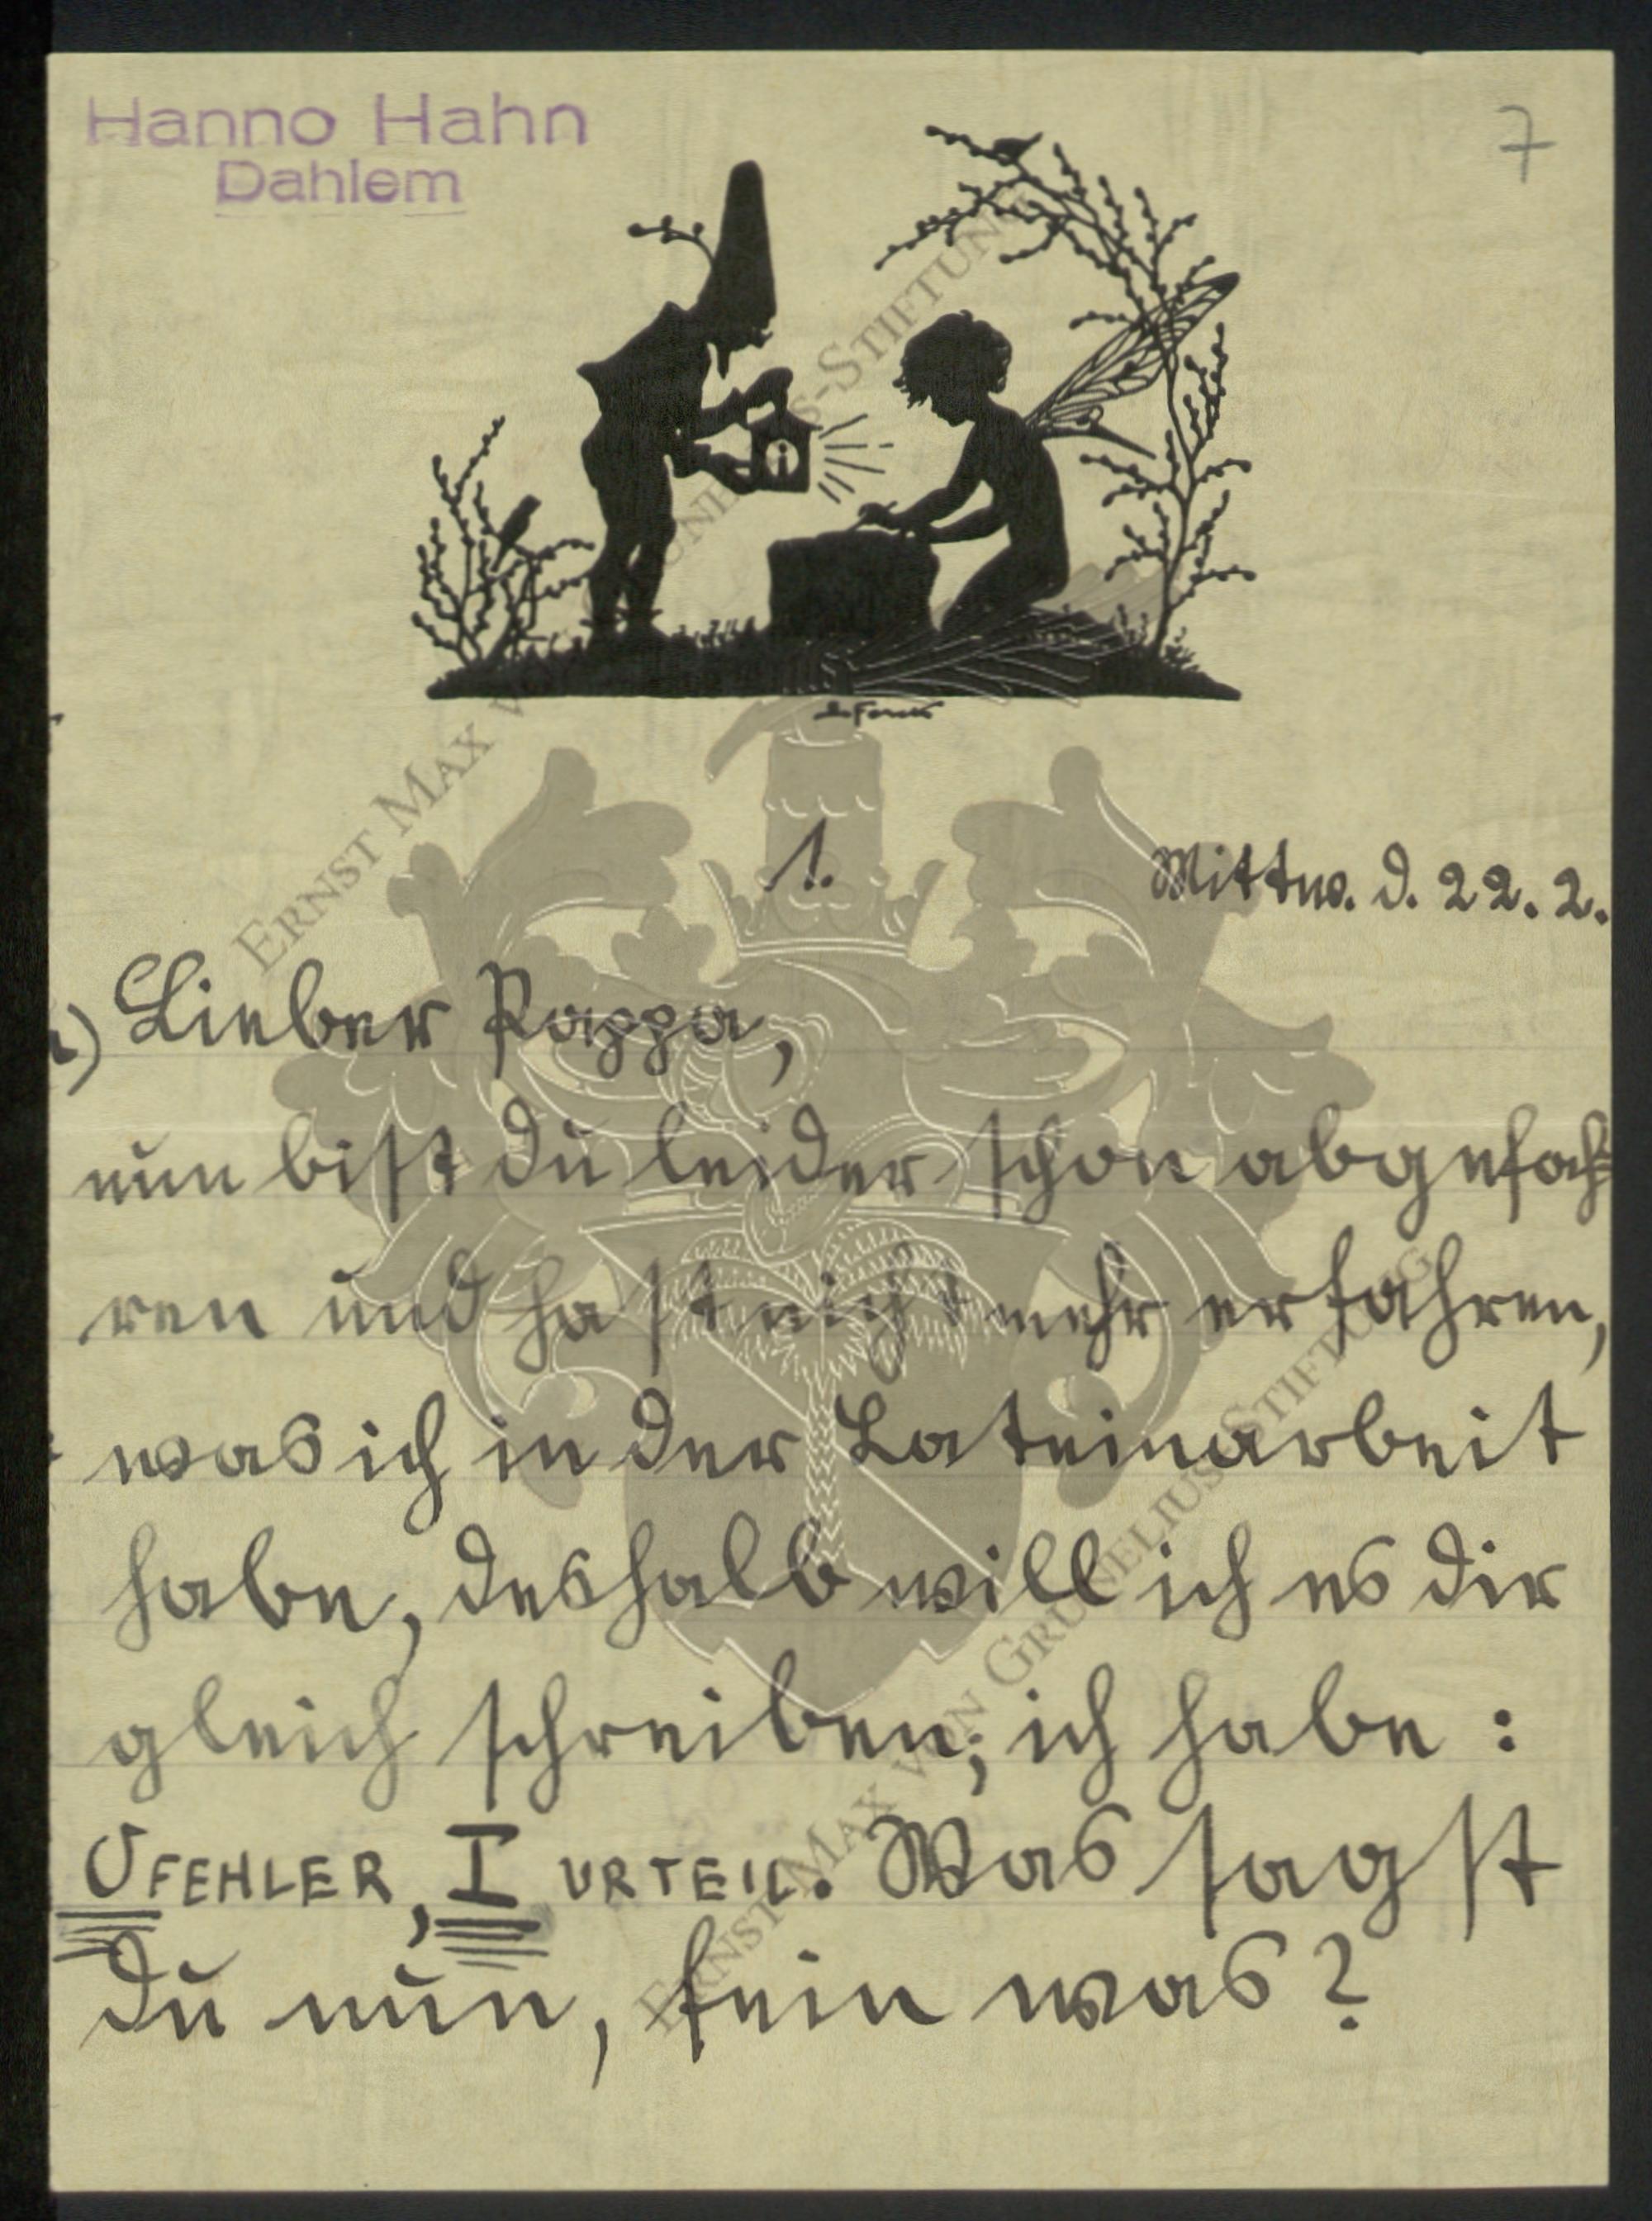 Hanno Hahn
Dahlem
7
1.
Mittw. d. 22. 2.
Lieber Pappa,
nun bist du leider schon abgefah-
ren und hast nicht mehr erfahren,
was ich in der Lateinarbeit
habe, deshalb will ich es dir
gleich schreiben; ich habe:
0 FEHLER, I URTEIL. Was sagst
du nun, fein was?
ERNST MAX VON GRUNELIUS-STIFTUNG
ERNST MAX VON GRUNELIUS-STIFTUNG